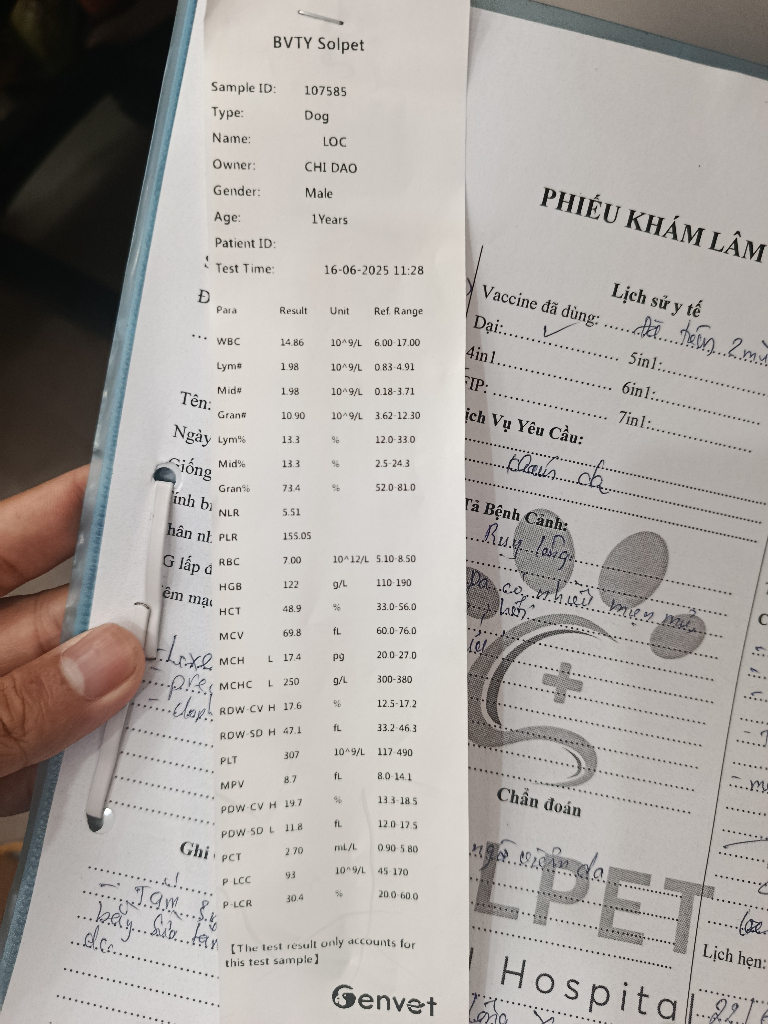 BVTY Solpet
Sample ID: 107585
Type: Dog
Name: LOC
Owner: CHI DAO
Gender: Male
Age: 1Years
Patient ID:
Test Time: 16-06-2025 11:28
Para Result Unit Ref. Range
WBC 14.86 10^9/L 6.00-17.00
Lym# 1.98 10^9/L 0.83-4.91
Mid# 1.98 10^9/L 0.18-3.71
Gran# 10.90 10^9/L 3.62-12.30
Lym% 13.3 % 12.0-33.0
Mid% 13.3 % 2.5-24.3
Gran% 73.4 % 52.0-81.0
NLR 5.51
PLR 155.05
RBC 7.00 10^12/L 5.10-8.50
HGB 122 g/L 110-190
HCT 48.9 % 33.0-56.0
MCV 69.8 fL 60.0-76.0
MCH L 17.4 pg 20.0-27.0
MCHC L 250 g/L 300-380
RDW-CV H 17.6 % 12.5-17.2
RDW-SD H 47.1 fL 33.2-46.3
PLT 307 10^9/L 117-490
MPV 8.7 fL 8.0-14.1
PDW-CV H 19.7 % 13.3-18.5
PDW-SD L 11.8 fL 12.0-17.5
PCT 2.70 mL/L 0.90-5.80
P-LCC 93 10^9/L 45-170
P-LCR 30.4 % 20.0-60.0
【The test result only accounts for
this test sample】
Genvet
Tên:
Ngày
Giống
Ghi
PHIẾU KHÁM LÂM
Lịch sử y tế
Vaccine đã dùng:
Dại:
4in1 5in1:
FIP: 6in1:
7in1:
ịch Vụ Yêu Cầu:
khám da
Tả Bệnh Cảnh:
Rụng lông
Da có nhiều mụn mủ
Chẩn đoán
viêm da
LPET
Hospital
Lịch hẹn: